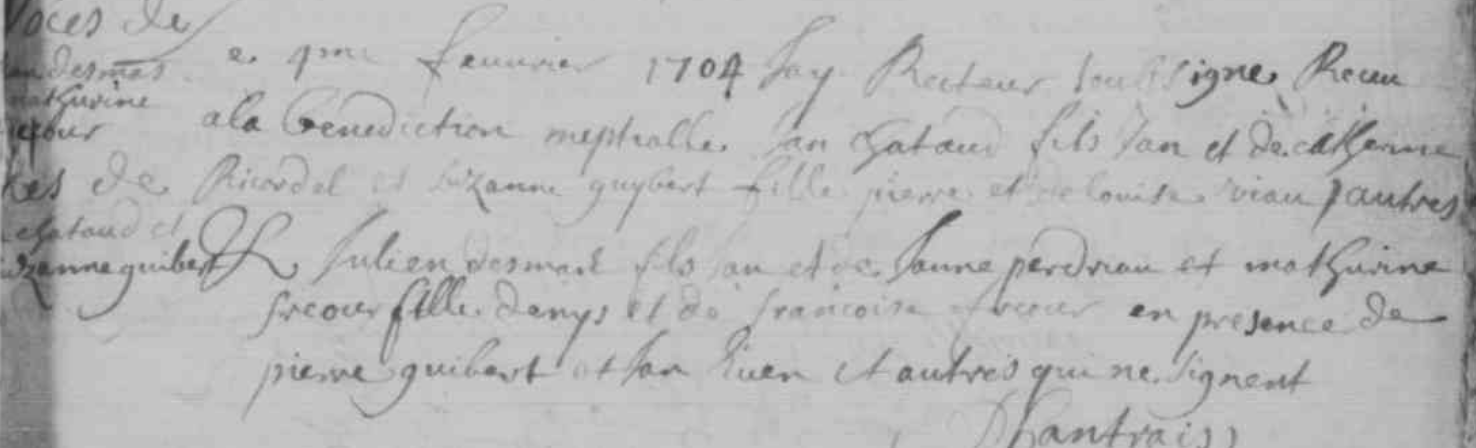 Noces de
Jan desmas
mathurine
frcour
Noces de
chataud et
suzanne guibert
Le 4me feuurier 1704 Jay Recteur soubsigne Receu
a la benediction nuptialle Jan chataud fils Jan et de catherine
Ricordel et suzanne guybert fille pierre et de louise viau dautres
Julien desmas fils Jan et de Janne perdriau et mathurine
frcour fille denys et de francoise en presence de
pierre guibert et Jan et autres qui ne signent